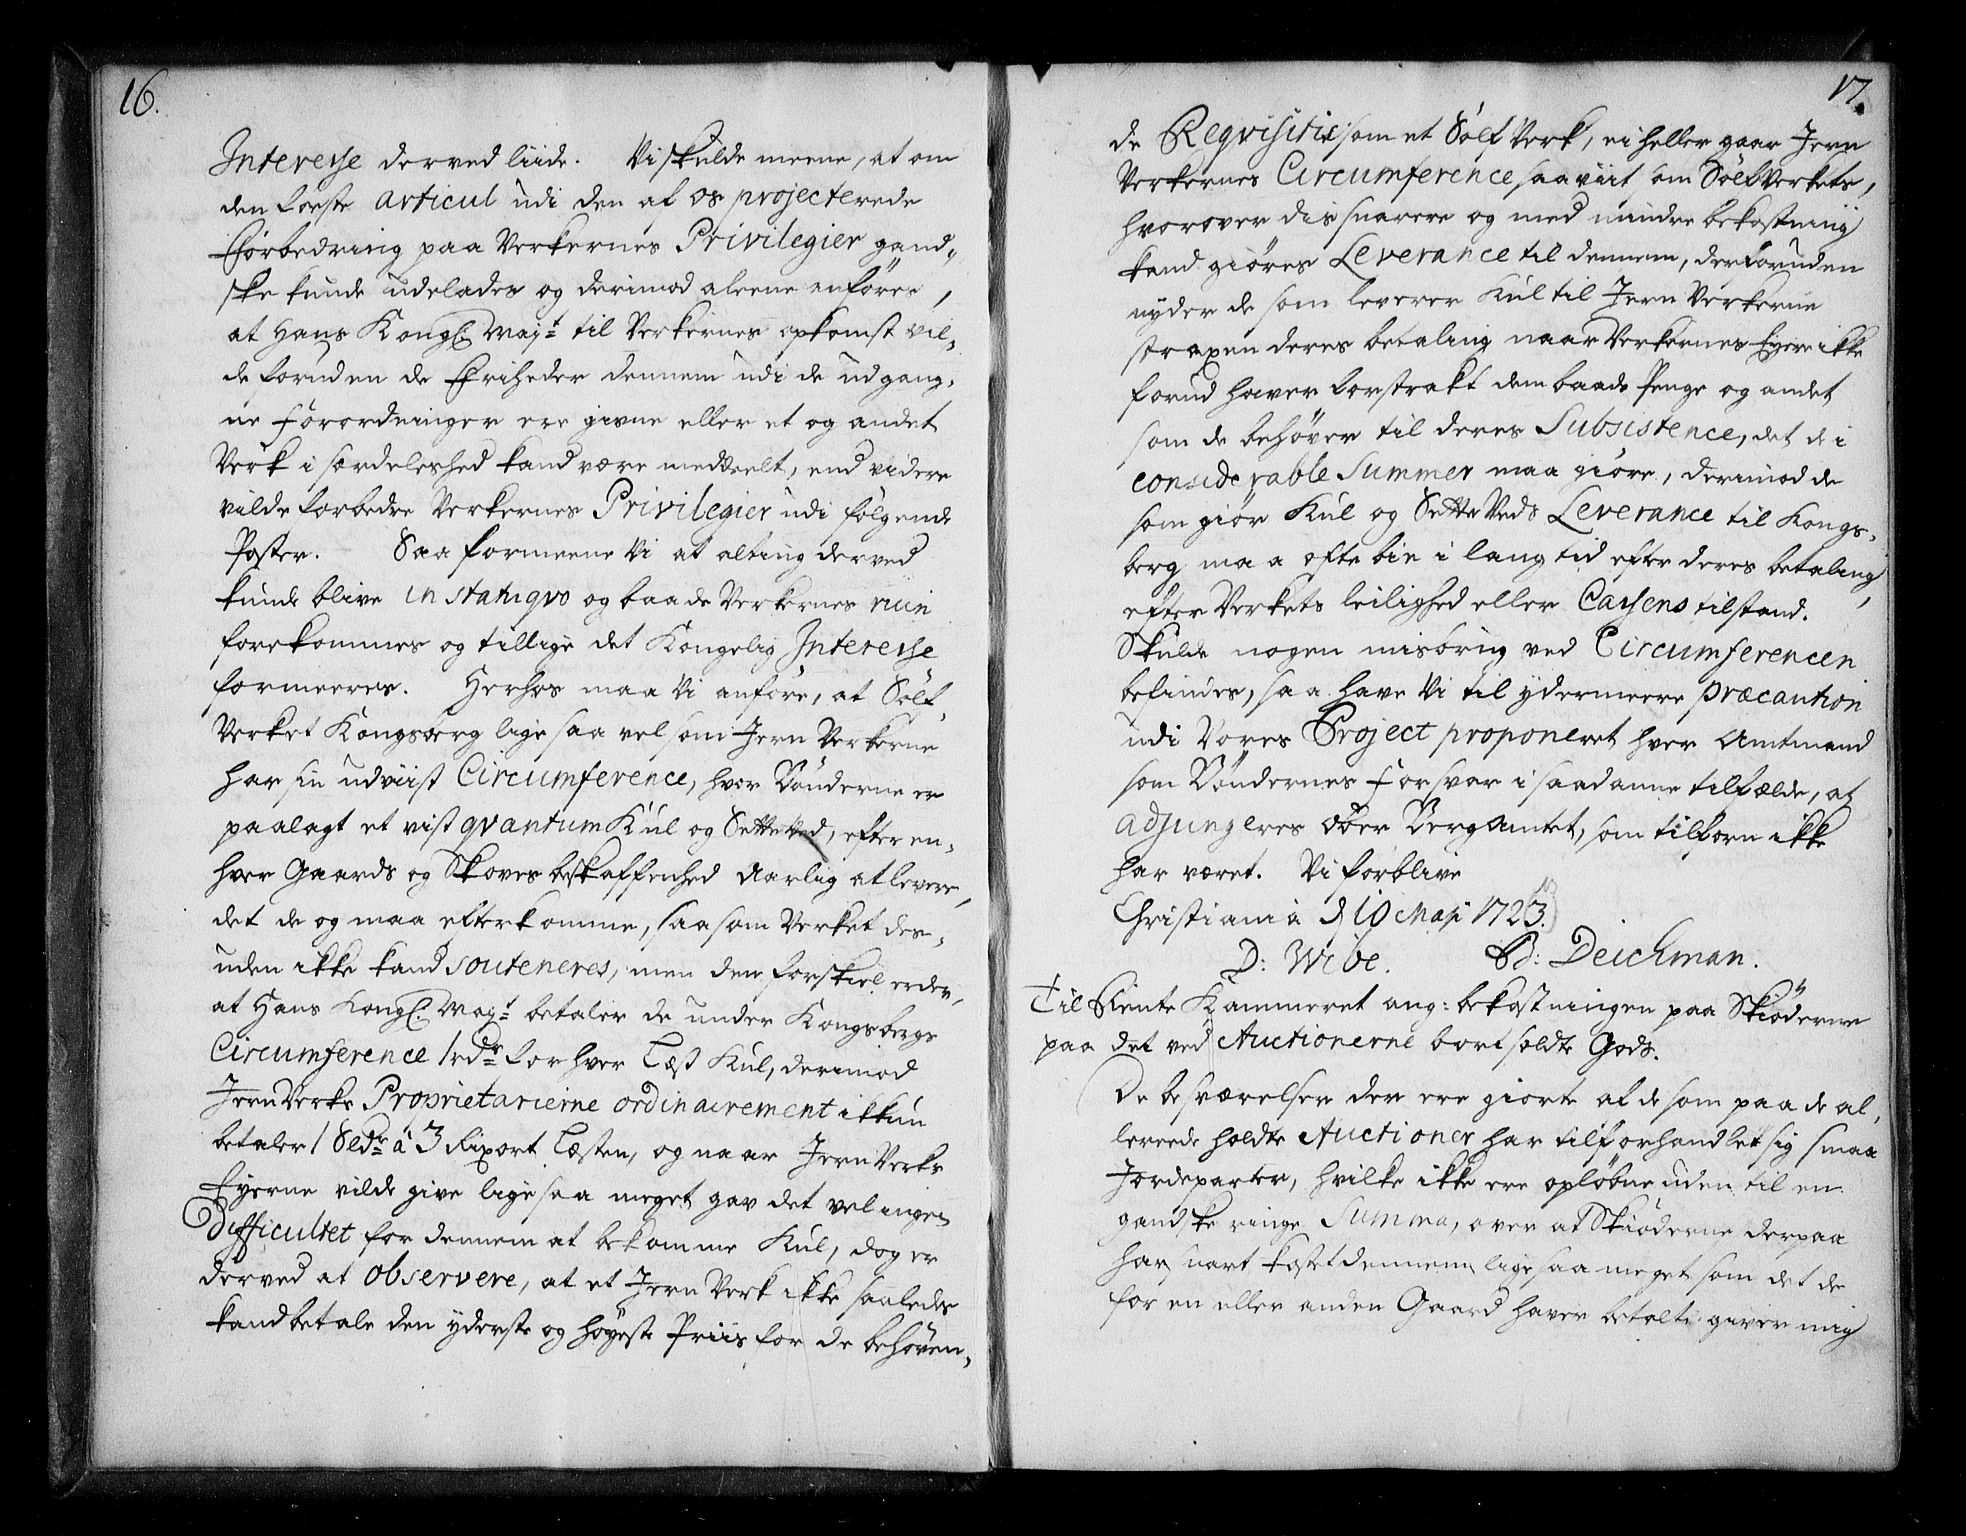 16.
Interesse derved liide. Vi skulde meene, at om
den første articul udi den af os projecterede
Forbedring paa Verkernes Privilegier gand-
ske kunde udelades og derimod aleene anføres,
at Hans Kongl: Mayt til Verkernes opkomst vil-
de foruden de Friheder dennem udi de udgang-
ne Forordninger ere givne eller et og andet
Verk i særdeleshed kand være meddeelt, end videre
vilde forbedre Verkernes Privilegier udi følgende
Poster. Saa formeene Vi at alting derved
kunde blive in statu qvo og baade Verkernes ruin
forekommes og tillige det Kongelig Interesse
formeeres. Herhos maa Vi anføre, at Sølf-
Verket Kongsberg lige saa vel som Jern Verkerne
har sin udviist Circumference, hvor Bønderne er
paalagt et vist qvantum Kul og Sette Ved, efter en-
hver Gaards og Skoves beskaffenhed Aarlig at levere,
det de og maa efterkomme, saasom Verket des-
uden ikke kand souteneres, men den forskiel er der,
at Hans Kongl: Mayt betaler de under Kongsbergs
Circumference 1 rdr for hver Læst Kul, derimod
Jern Verks Proprietarierne ordinairement ikkun
betaler 1 Sldr à 3 Rixort Læsten, og naar Jern Verks
Eyerne vilde give lige saa meget gav det vel ingen
Difficultet for dennem at bekomme Kul, dog er
derved at observere, at et Jern Verk ikke saaledes
kand betale den yderste og høyeste Priis for de behøven-
17.
de Reqvisitis som et Sølf Verk, ei heller gaar Jern
Verkernes Circumference saa viit som Sølf Verkets,
hvorover dis snarere og med mindre bekostning
kand giøres Leverance til dennem, der foruden
nyder de som leverer Kul til Jern Verkerne
straxen deres betaling naar Verkernes Eyere ikke
forud haver forstrakt dem baade Penge og andet
som de behøver til deres Subsistence, det de i
considerable Summer maa giøre, derimod de
som giør Kul og Sette Veds Leverance til Kongs-
berg maa ofte bie i lang tid efter deres betaling,
efter Verkets leilighed eller Cassens tilstand.
Skulde nogen misbrug ved Circumferencen
befindes, saa have Vi til ydermeere præcaution
udi Vores Project proponeret hver Amtmand
som Bøndernes Forsvar i saadanne tilfælde, at
adjungeres Ober Bergamtet, som tilforn ikke
har været. Vi forblive
Christiania d 10 Maji 1723.
D: Wibe. Bd: Deichman.
Til Rente Kammeret ang: bekostningen paa Skiøderne
paa det ved Auctionerne bortsoldte Gods.
De besværelser der ere giorte af de som paa de al-
lereede holdte Auctioner har tilforhandlet sig smaa
Jordeparter, hvilke ikke ere opløbne uden til en
gandske ringe Summa, over at Skiøderne derpaa
har snart kostet dennem lige saa meget som det de
for en eller anden Gaard haver betalt giver mig